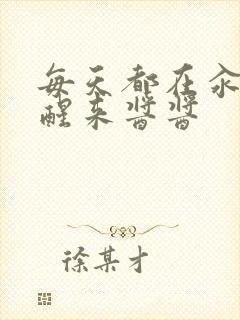 每天都在汆
醒来酱酱
徐某才